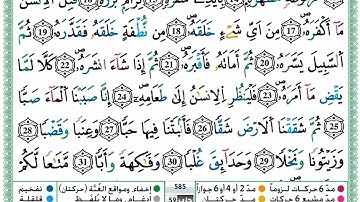 بِأَيْدِي سَفَرَةٍ ١٥ كِرَامٍ بَرَرَةٍ ١٦ قُتِلَ ٱلْإِنسَٰنُ
مَآ أَكْفَرَهُۥ ١٧ مِنْ أَىِّ شَىْءٍ خَلَقَهُۥ ١٨ مِن نُّطْفَةٍ خَلَقَهُۥ فَقَدَّرَهُۥ ١٩ ثُمَّ
ٱلسَّبِيلَ يَسَّرَهُۥ ٢٠ ثُمَّ أَمَاتَهُۥ فَأَقْبَرَهُۥ ٢١ ثُمَّ إِذَا شَآءَ أَنشَرَهُۥ ٢٢ كَلَّا لَمَّا
يَقْضِ مَآ أَمَرَهُۥ ٢٣ فَلْيَنظُرِ ٱلْإِنسَٰنُ إِلَىٰ طَعَامِهِۦٓ ٢٤ أَنَّا صَبَبْنَا ٱلْمَآءَ صَبًّا
٢٥ ثُمَّ شَقَقْنَا ٱلْأَرْضَ شَقًّا ٢٦ فَأَنۢبَتْنَا فِيهَا حَبًّا ٢٧ وَعِنَبًا وَقَضْبًا ٢٨
وَزَيْتُونًا وَنَخْلًا ٢٩ وَحَدَآئِقَ غُلْبًا ٣٠ وَفَٰكِهَةً وَأَبًّا ٣١ مَّتَٰعًا لَّكُمْ
مدّ ٦ حركات لزوماً مدّ ٢ أو ٤ أو ٦ جوازاً 585 إخفاء، ومواقع الغُنَّة (حركتان) تفخيم
مدّ مشبع ٦ حركات مدّ حركتان 59 إدغام، وما لا يُلفَظ قلقلة